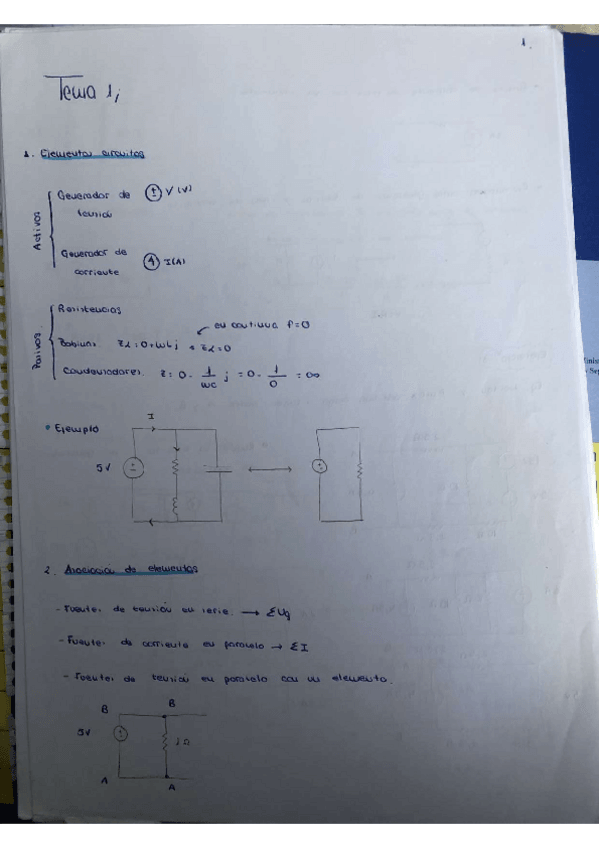 1.
Tema 1,
1. Elementos circuitos
Activos
Generador de tensión ± V (V)
Generador de corriente I(A)
Pasivos
Resistencias
en continua f=0
Bobinas. ZL=0+WLj ZL=0
Condensadores. Z=0- 1/WC j =0- 1/0 =∞
• Ejemplo
I
5V
2. Asociación de elementos
- Fuentes de tensión en serie. → ΣUg
- Fuentes de corriente en paralelo → ΣI
- Fuentes de tensión en paralelo con un elemento.
B B
5V Ω
A A